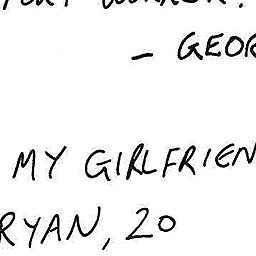 – GEOR
MY GIRLFRIEN
RYAN, 20